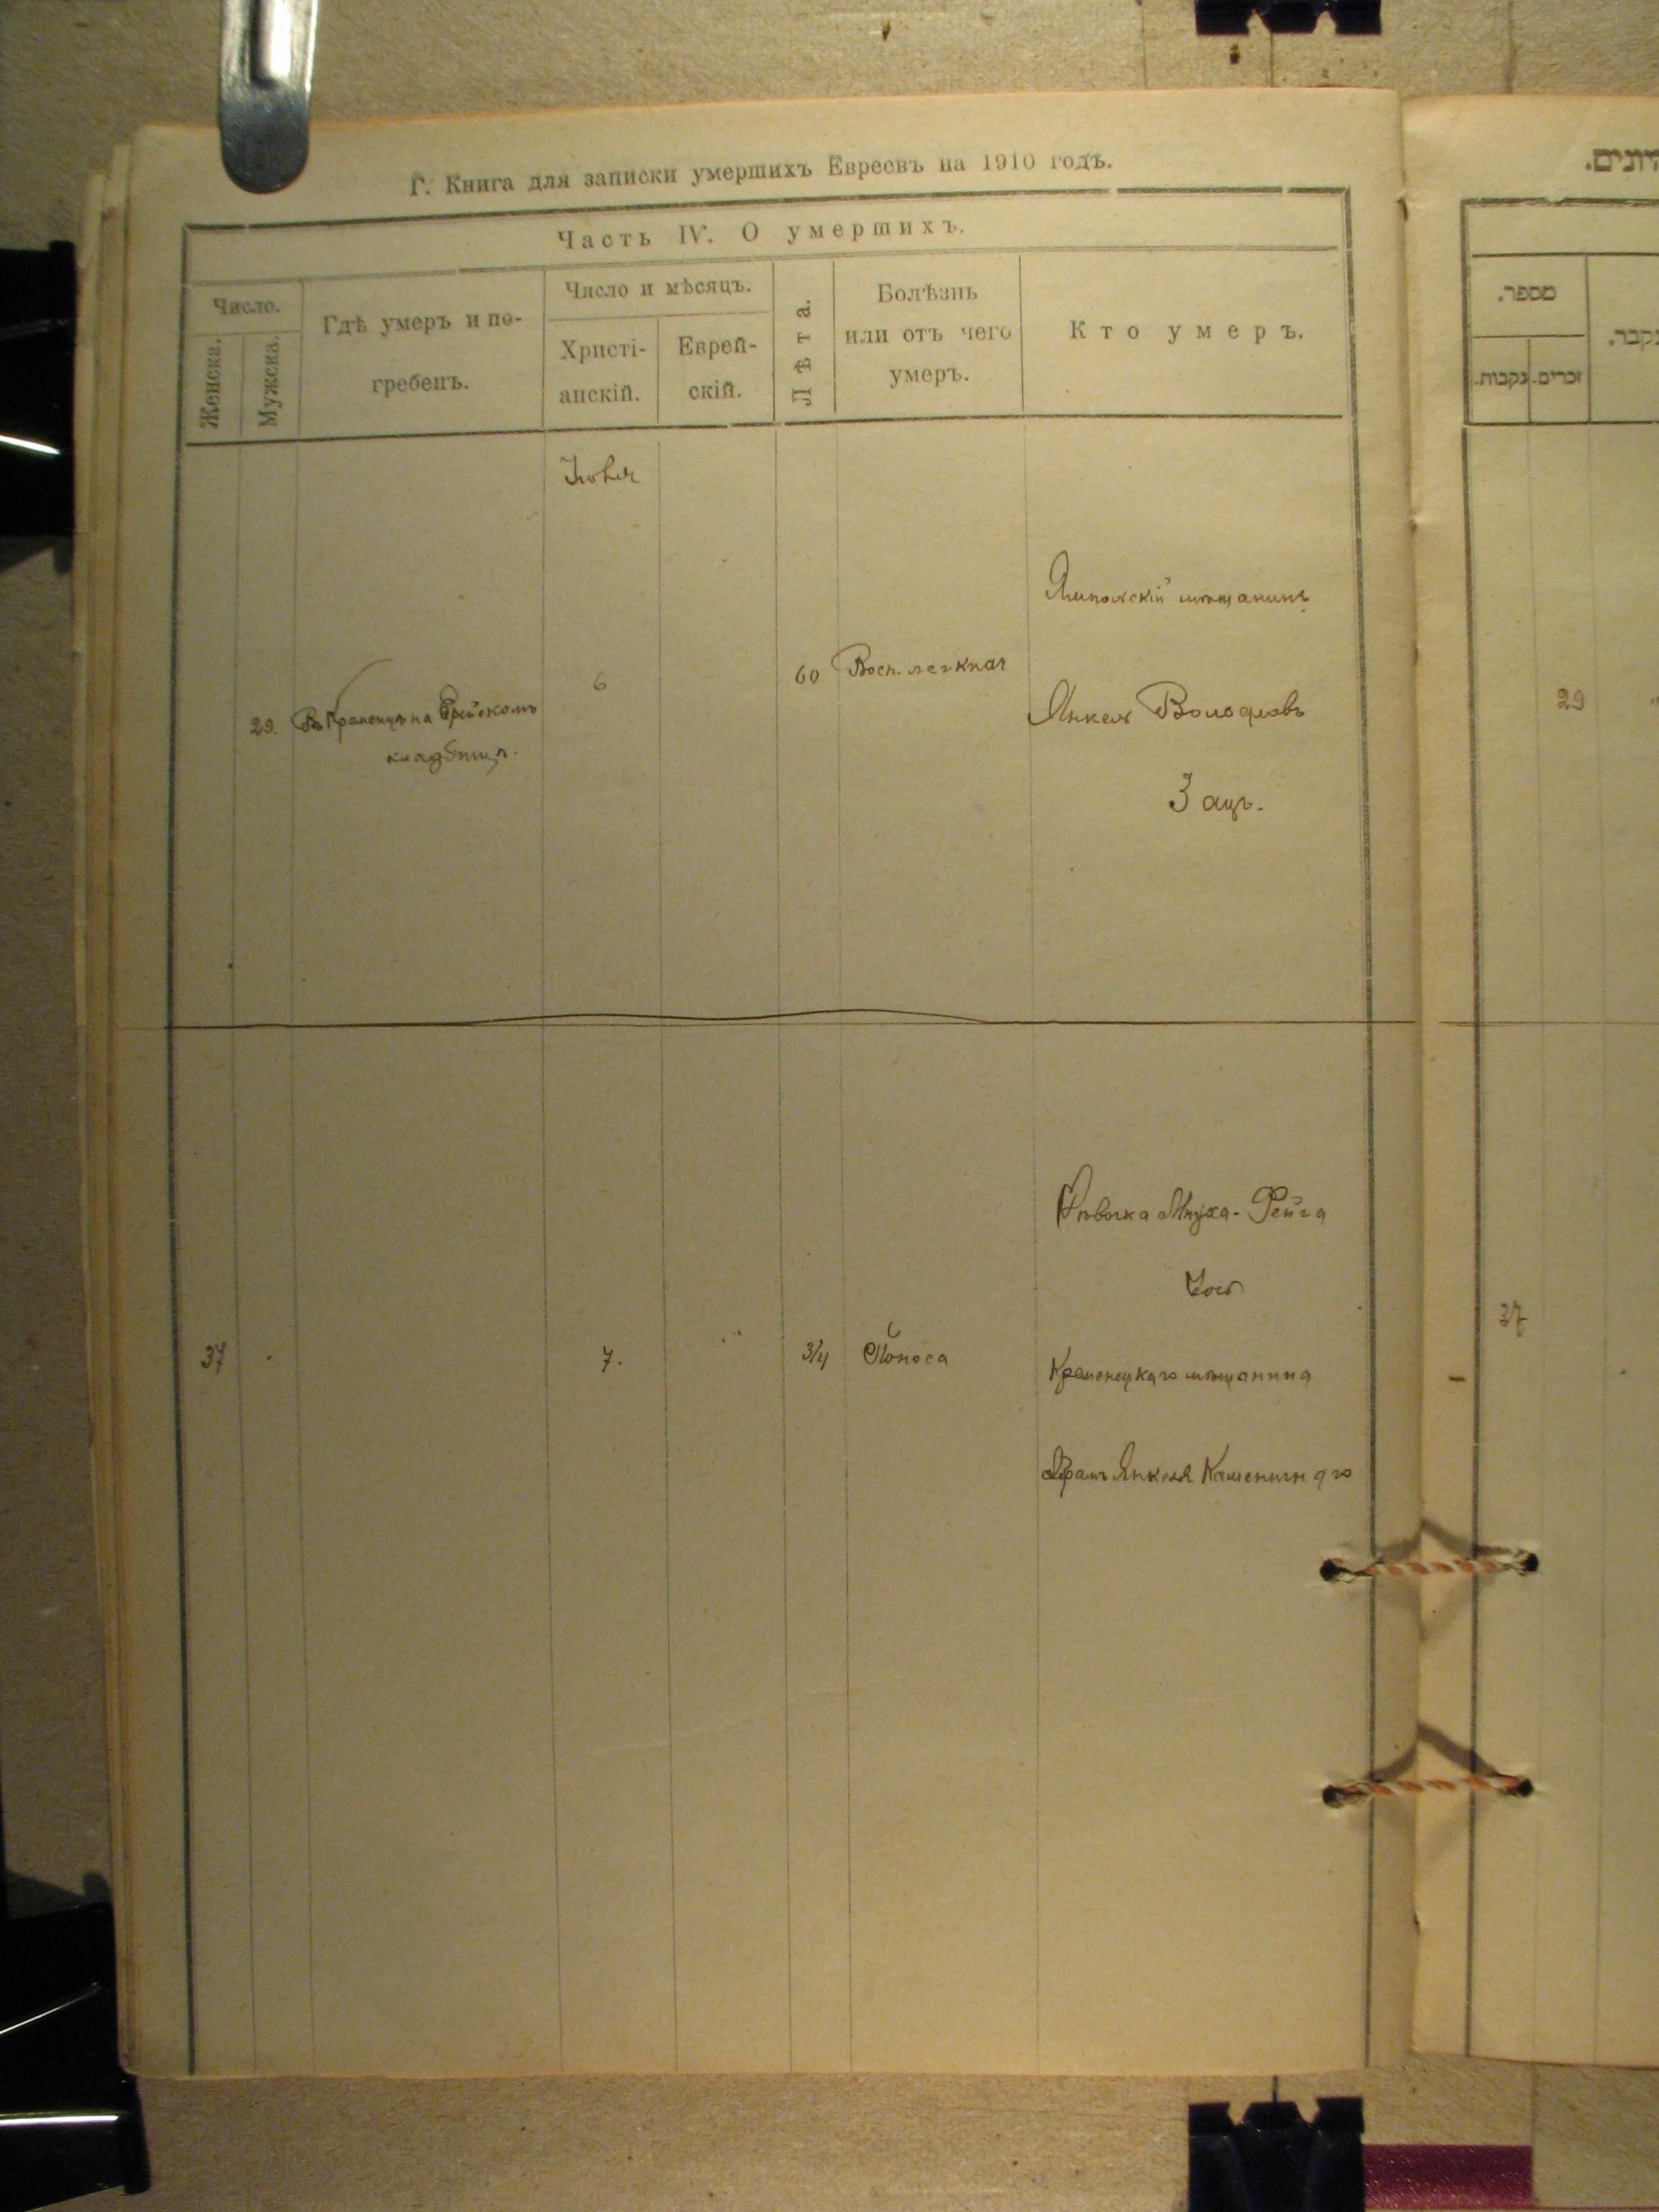 Г. Книга для записки умершихъ Евреевъ на 1910 годъ.
Часть IV. О умершихъ.
Число.
Женска.
Мужска.
Гдѣ умеръ и по-
гребенъ.
Число и мѣсяцъ.
Христі-
анскій.
Еврей-
скій.
Лѣта.
Болѣзнь
или отъ чего
умеръ.
Кто умеръ.
Іюля
29.
Въ Кременцѣ на Еврейскомъ
кладбищѣ.
6
60
Восп. легкнаг
Ямпольскій мѣщанинъ
Янкель
Зацъ.
37
7.
3/4
Поноса
Дѣвочка Фейга
Кременецкаго мѣщанина
Абрамъ Янкеля
מספר.
נקבות.
זכרים.
29
37